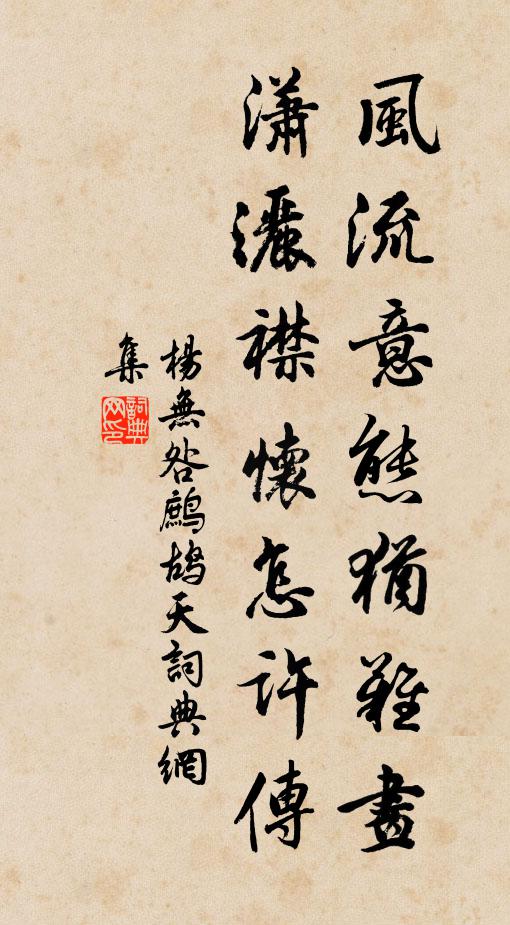 風流意態猶難畫
瀟灑襟懷怎許傳
楊無咎鷓鴣天詞典網
集
詞典網印